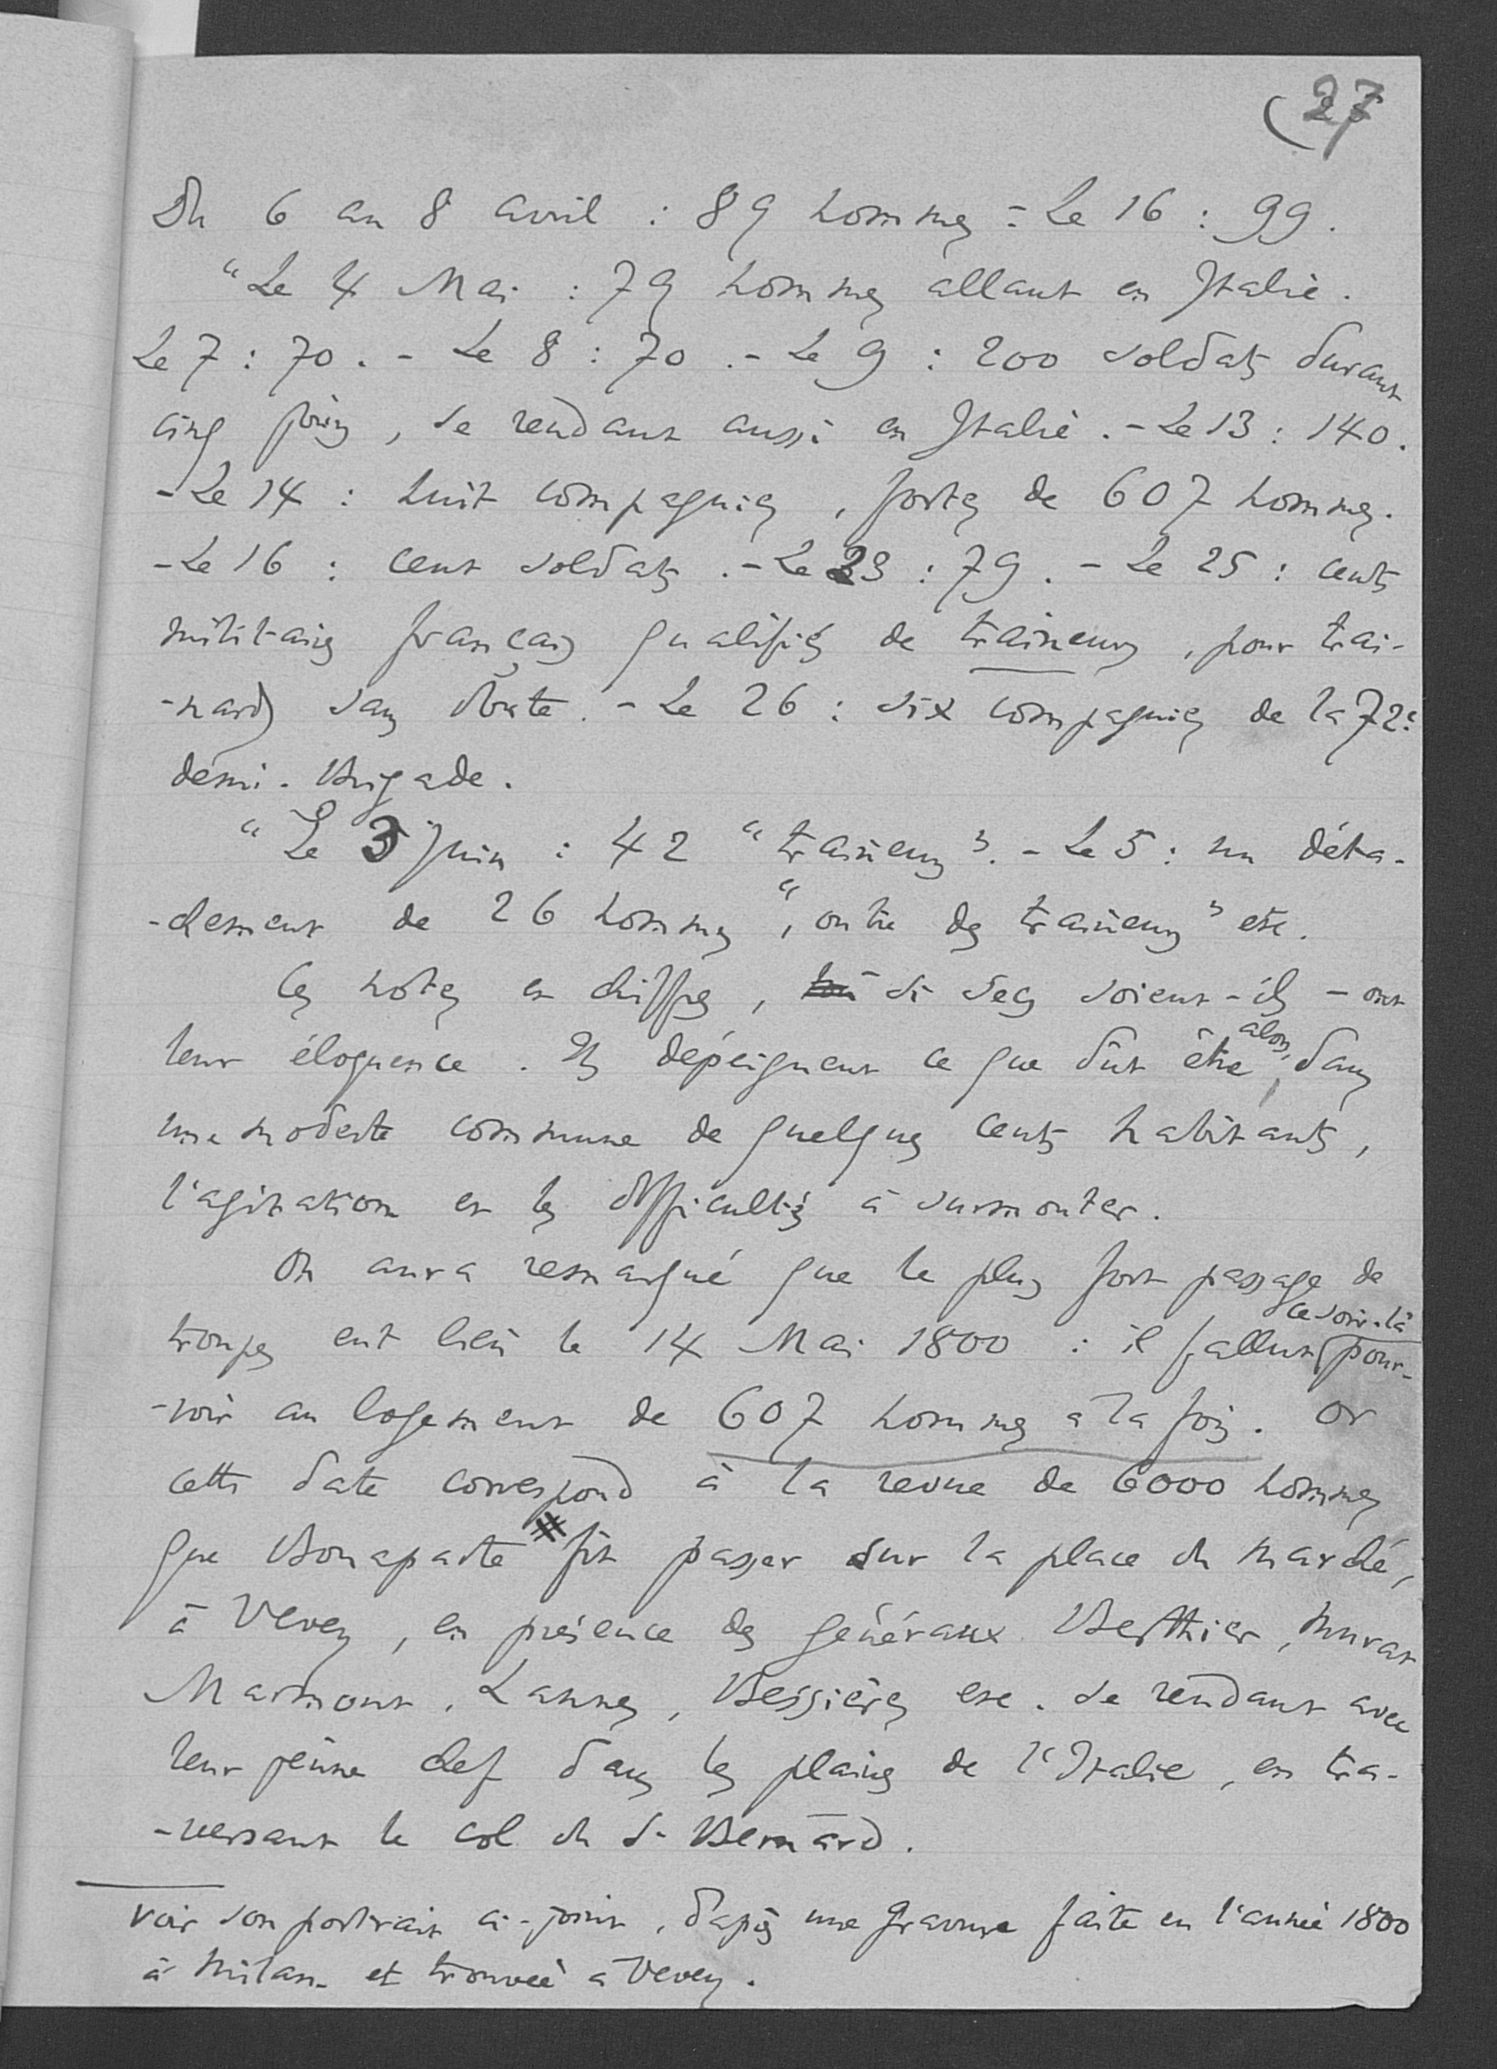 27
Du 6 au 8 avril : 89 hommes - Le 16 : 99.
"Le 4 Mai : 79 hommes allant en Italie.
Le 7 : 70. - Le 8 : 70. - Le 9 : 200 soldats durant
cinq jours, se rendant aussi en Italie. - Le 13 : 140.
- Le 14 : huit compagnies, fortes de 607 hommes.
- Le 16 : cent soldats. - Le 23 : 79. - Le 25 : cents
militaires français qualifiés de traineurs, pour trai-
-nards sans doute. - Le 26 : six compagnies de la 72e
demi-Brigade.
"Le 3 Juin : 42 "traineurs". - Le 5 : un déta-
-chement de 26 hommes, "outre des traineurs" etc.
Ces notes en chiffres, si secs soient-ils - ont
leur éloquence. Ils dépeignent ce que dût être alors, dans
une modeste commune de quelques cents habitants,
l'agitation et les difficultés à surmonter.
On aura remarqué que le plus fort passage de
troupes eut lieu le 14 Mai 1800 : il fallut ce soir-là pour-
-voir au logement de 607 hommes à la fois. Or
cette date correspond à la revue de 6000 hommes
que Bonaparte # fit passer sur la place du Marché,
à Vevey, en présence des généraux Berthier, Murat
Marmont, Lannes, Bessières etc. se rendant avec
leur jeune chef dans les plaines de l'Italie, en tra-
-versant le col du St Bernard.
Voir son portrait ci-joint, d'après une gravure faite en l'année 1800
à Milan et trouvée à Vevey.